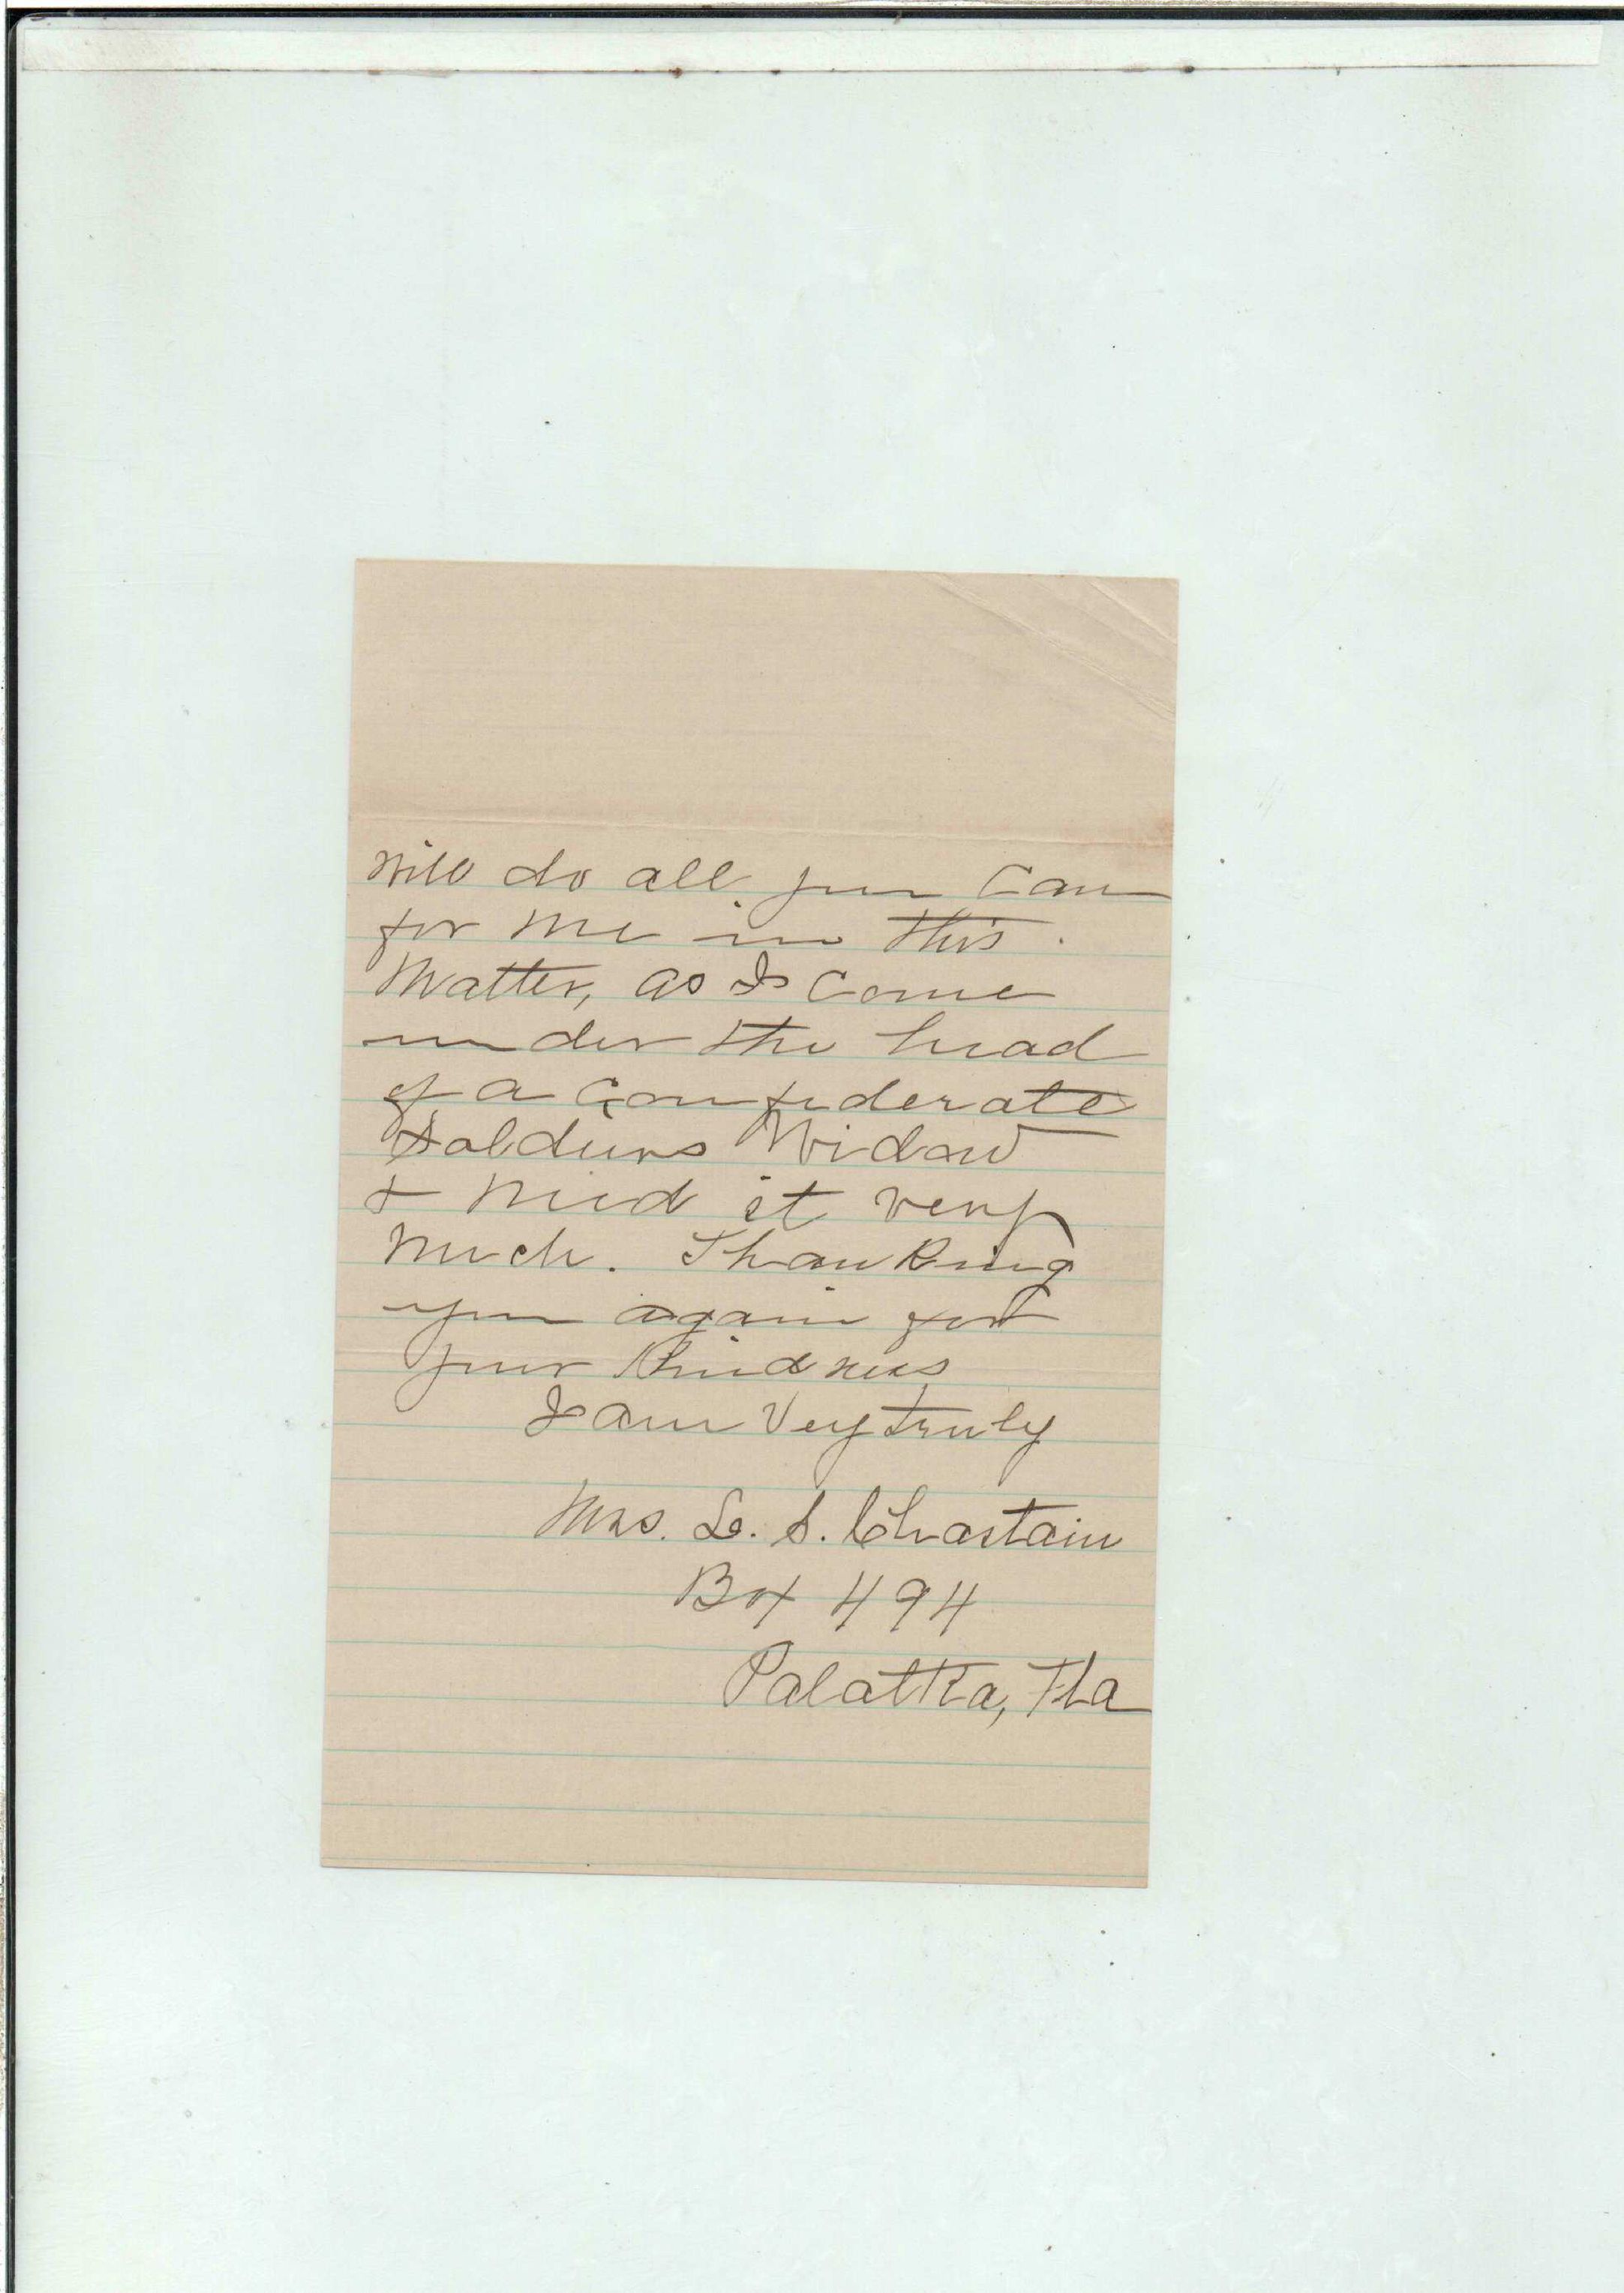 Will do all you Can
for Me in this.
Matter, as I Come
under the head
of a Confederate
Soldiers Widow
& Need it very
Much. Thanking
you again for
your Kindness
I am Very truly
Mrs. L. S. Chastain
Box 494
Palatka, Fla